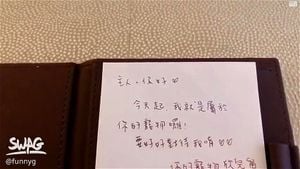 主人，你好♡
今天起，我就是屬於
你的寵物囉！
要好好對待我唷♡♡
你的寵物
SWAG
@funnyg